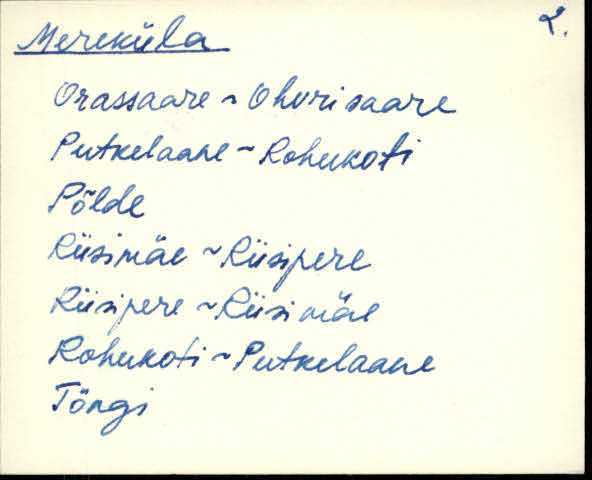 Mereküla 2.
Orassaare ~ Ohvrisaare
Putkelaane ~ Rohukoti
Põlde
Riisimäe ~ Riisipere
Riisipere ~ Riisimäe
Rohukoti ~ Putkelaane
Tõngi